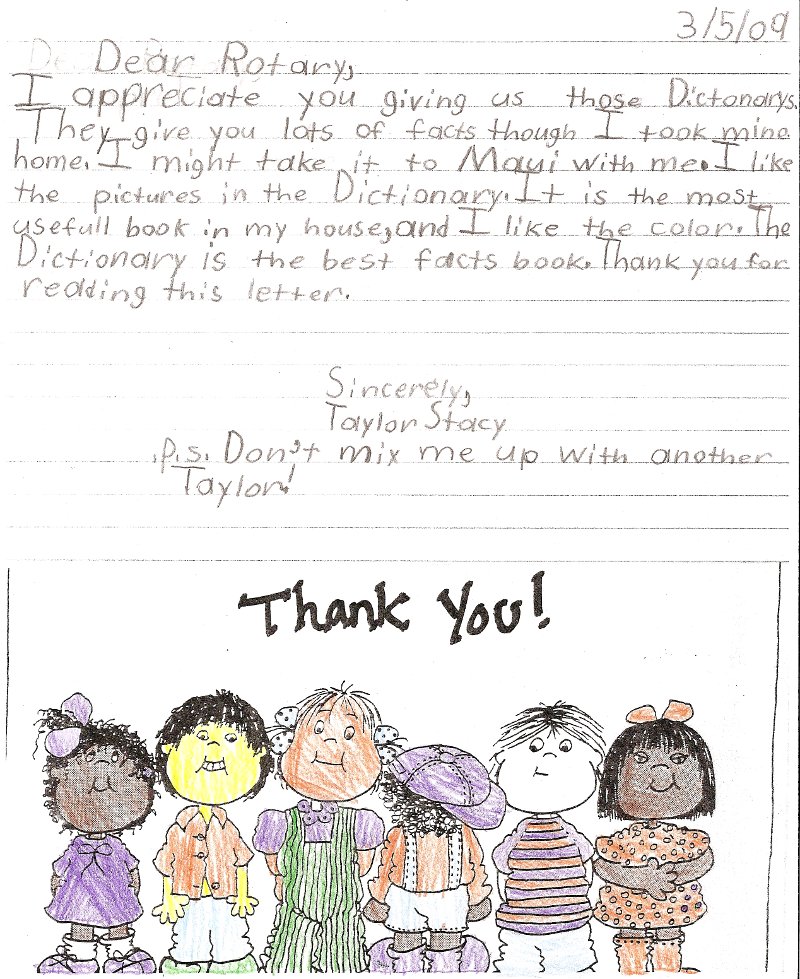 3/5/09
Dear Rotary,
I appreciate you giving us those Dictonarys.
They give you lots of facts though I took mine
home. I might take it to Maui with me. I like
the pictures in the Dictionary. It is the most
usefull book in my house, and I like the color. The
Dictionary is the best facts book. Thank you for
reading this letter.
Sincerely,
Taylor Stacy
P.s. Don't mix me up with another
Taylor!
Thank You!